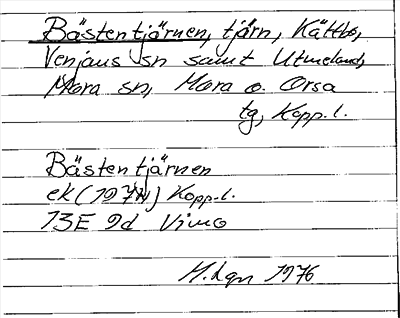 Bästentjärnen, tjärn, Kättbo,
Venjans sn samt Utmeland,
Mora sn, Mora o. Orsa
tg, Kopp. l.
Bästentjärnen
ek (1974) Kopp. l.
13E 9d Vimo
M. Lgn 1976